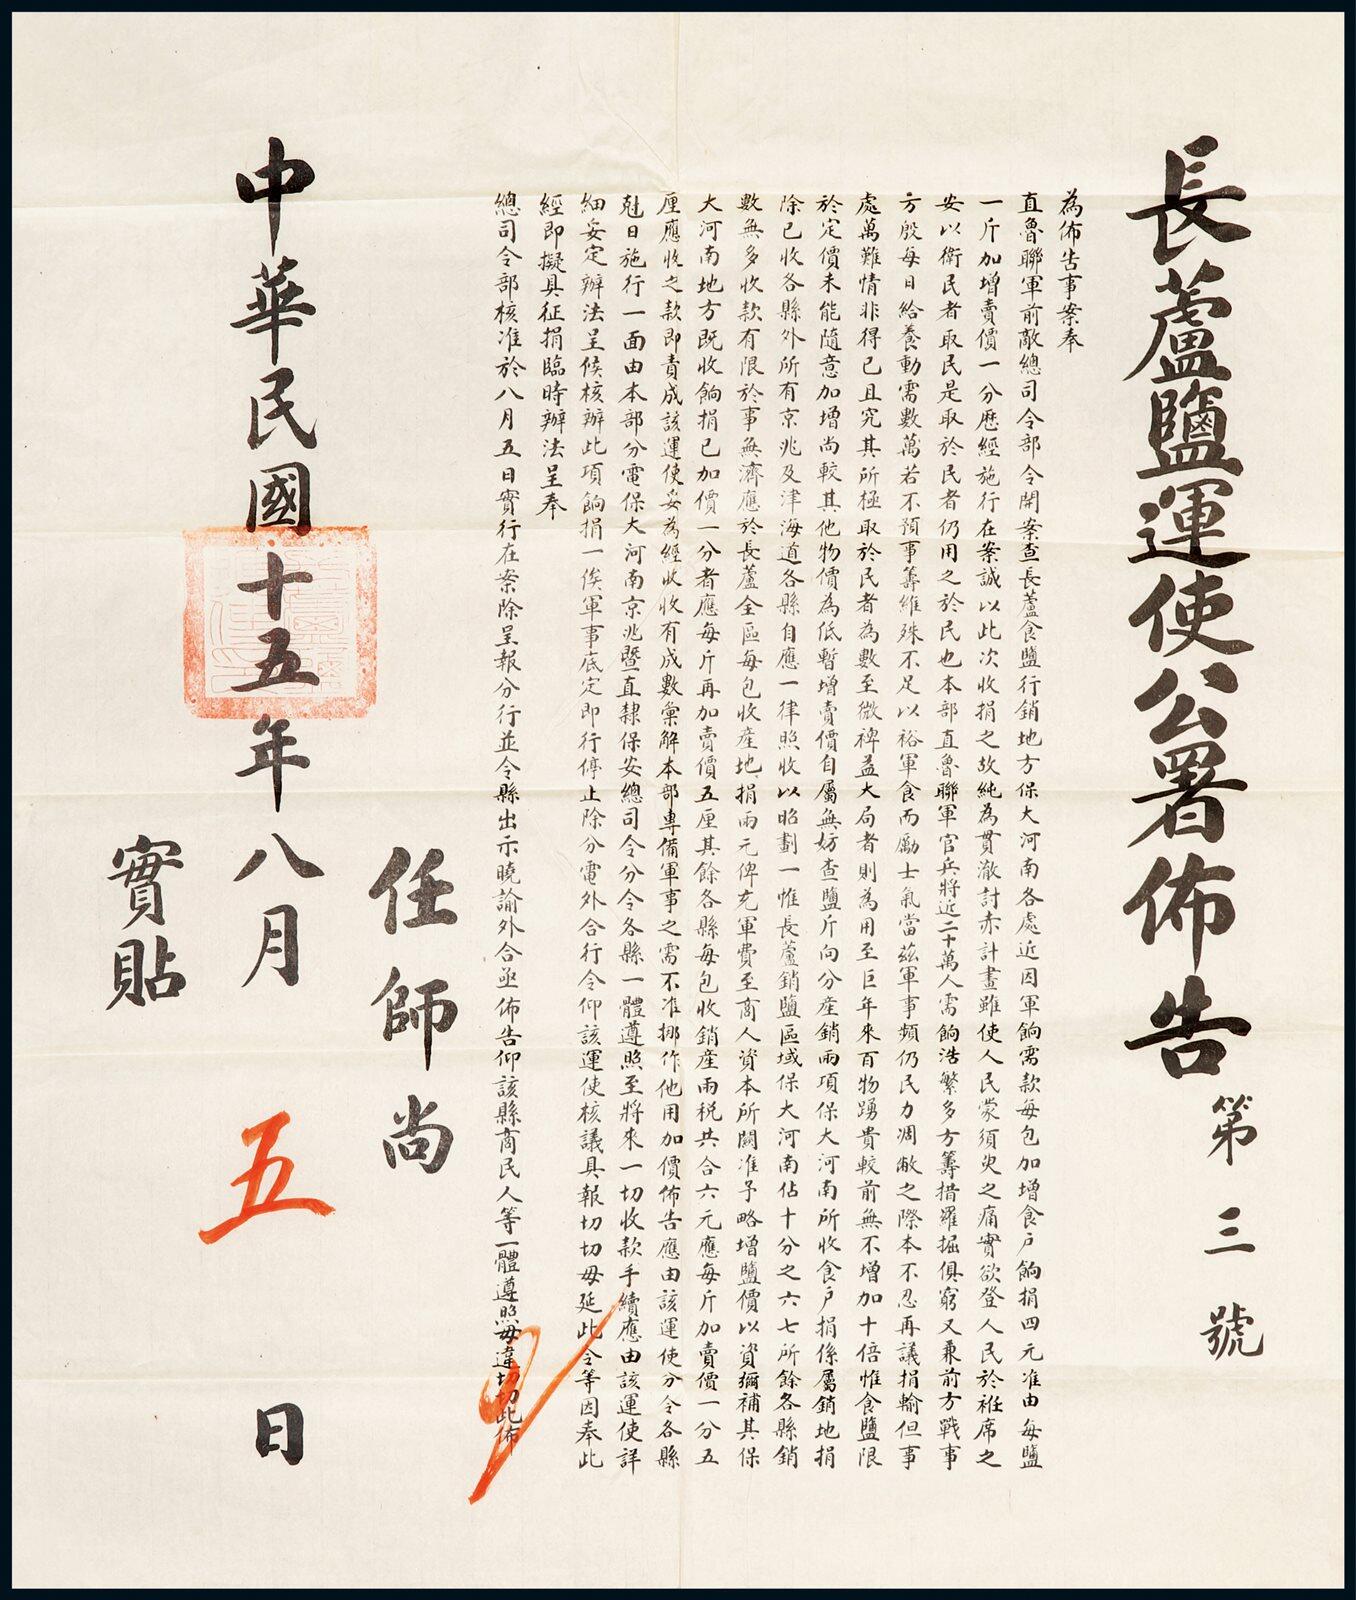 長蘆鹽運使公署佈告
第三號
為佈告事案奉
直魯聯軍前敵總司令部令開案查長蘆食鹽行銷地方保大河南各處近因軍餉需款每包加增食戶餉捐四元准由每鹽
一斤加增賣價一分歷經施行在案誠以此次收捐之故純為貫澈討赤計畫雖使人民蒙須臾之痛實欲登人民於袵席之
安以衛民者取民是取於民者仍用之於民也本部直魯聯軍官兵將近二十萬人需餉浩繁多方籌措羅掘俱窮又兼前方戰事
方殷每日給養動需數萬若不預事籌維殊不足以裕軍食而勵士氣當茲軍事頻仍民力凋敝之際本不忍再議捐輸但事
處萬難情非得已且究其所極取於民者為數至微裨益大局者則為用至巨年來百物踴貴較前無不增加十倍惟食鹽限
於定價未能隨意加增尚較其他物價為低暫增賣價自屬無妨查鹽斤向分產銷兩項保大河南所收食戶捐係屬銷地捐
除已收各縣外所有京兆及津海道各縣自應一律照收以昭劃一惟長蘆銷鹽區域保大河南佔十分之六七所餘各縣銷
數無多收款有限於事無濟應於長蘆全區每包收產地捐兩元俾充軍費至商人資本所關准予略增鹽價以資彌補其保
大河南地方既收餉捐已加價一分者應每斤再加賣價五厘其餘各縣每包收銷產兩税共合六元應每斤加賣價一分五
厘應收之款即責成該運使妥為經收收有成數彙解本部專備軍事之需不准挪作他用加價佈告應由該運使分令各縣
尅日施行一面由本部分電保大河南京兆暨直隸保安總司令分令各縣一體遵照至將來一切收款手續應由該運使詳
細妥定辦法呈候核辦此項餉捐一俟軍事底定即行停止除分電外合行令仰該運使核議具報切切毋延此令等因奉此
經即擬具征捐臨時辦法呈奉
總司令部核准於八月五日實行在案除呈報分行並令縣出示曉諭外合亟佈告仰該縣商民人等一體遵照毋違切切此佈
任師尚
中華民國十五年八月五日
實貼